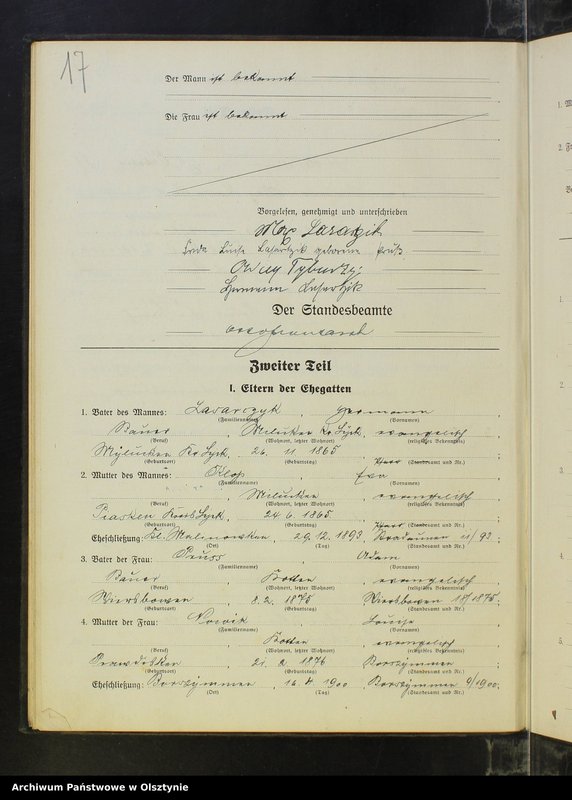 17
Der Mann ist bekannt
Die Frau ist bekannt
Vorgelesen, genehmigt und unterschrieben
Max
geborene
Hermann
Der Standesbeamte
Zweiter Teil
I. Eltern der Ehegatten
1. Vater des Mannes: Lasarzyk, Hermann
(Familienname) (Vornamen)
Bauer, Milucken Kr Lyck, evangelisch,
(Beruf) (Wohnort, letzter Wohnort) (religiöses Bekenntnis)
Mylucken Kr Lyck, 26. 11. 1865
(Geburtsort) (Geburtstag) (Standesamt und Nr.)
2. Mutter des Mannes: Klos, Eva
(Familienname) (Vornamen)
Milucken, evangelisch,
(Beruf) (Wohnort, letzter Wohnort) (religiöses Bekenntnis)
Piasken Kreis Lyck, 24. 6. 1865.
(Geburtsort) (Geburtstag) (Standesamt und Nr.)
Eheschließung: Kl. Malinowken, 29. 12. 1893, 11/93;
(Ort) (Tag) (Standesamt und Nr.)
3. Vater der Frau: Preuss, Adam
(Familienname) (Vornamen)
Bauer, evangelisch,
(Beruf) (Wohnort, letzter Wohnort) (religiöses Bekenntnis)
Wiersbowen, 8. 2. 1875, Wiersbowen 18/1875;
(Geburtsort) (Geburtstag) (Standesamt und Nr.)
4. Mutter der Frau: Nowik, Louise
(Familienname) (Vornamen)
evangelisch
(Beruf) (Wohnort, letzter Wohnort) (religiöses Bekenntnis)
Prawdzisken, 1876, Borszymmen
(Geburtsort) (Geburtstag) (Standesamt und Nr.)
Eheschließung: Borszymmen, 16. 4. 1900, Borszymmen 9/1900;
(Ort) (Tag) (Standesamt und Nr.)
Archiwum Państwowe w Olsztynie